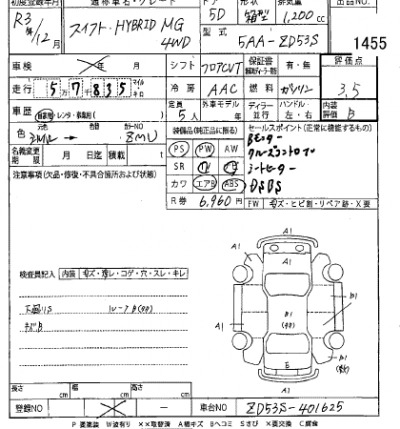 初度登録年月 通称車名・グレード ドア 形状 排気量 出品NO.
R3年12月 スイフト・HYBRID MG 4WD 5D 箱型 1,200cc
型式 5AA-ZD53S 1455
車検 年 月 シフト フロアCVT 保証書 有・無 評価点
走行 57835 キロ 冷房 AAC 燃料 ガソリン 3.5
車歴 自家用・レンタ・事業用( ) 定員 5人 外車モデル 年 ディーラー 並行 ハンドル 左・右 内装評価 B
色 元色 カラーNO ZMU
装備品(純正品に限る) セールスポイント(正常に機能するもの)
名義変更期限 月 日迄 積載 t
PS PW AW Bモニター
注意事項(欠品・修復・不具合箇所および状態)
SR クルーズコントロール
シートヒーター
カワ エアB ABS DSBS
R券 6,960円 FW キズ・ヒビ割・リペア跡・X要
検査員記入 内装 キズ・汚レ・コゲ・穴・スレ・キレ
下廻りS
キズB
ルーフB
A1
A1 A1
A1
B1
A1 B1
B1
A1
E
A1
長さ cm 幅 cm 高さ cm
登録NO ー 車台NO ZD53S-401625
P要塗装 W波有り XX取替済 A線キズ Bヘコミ Sさび X要交換 C腐食